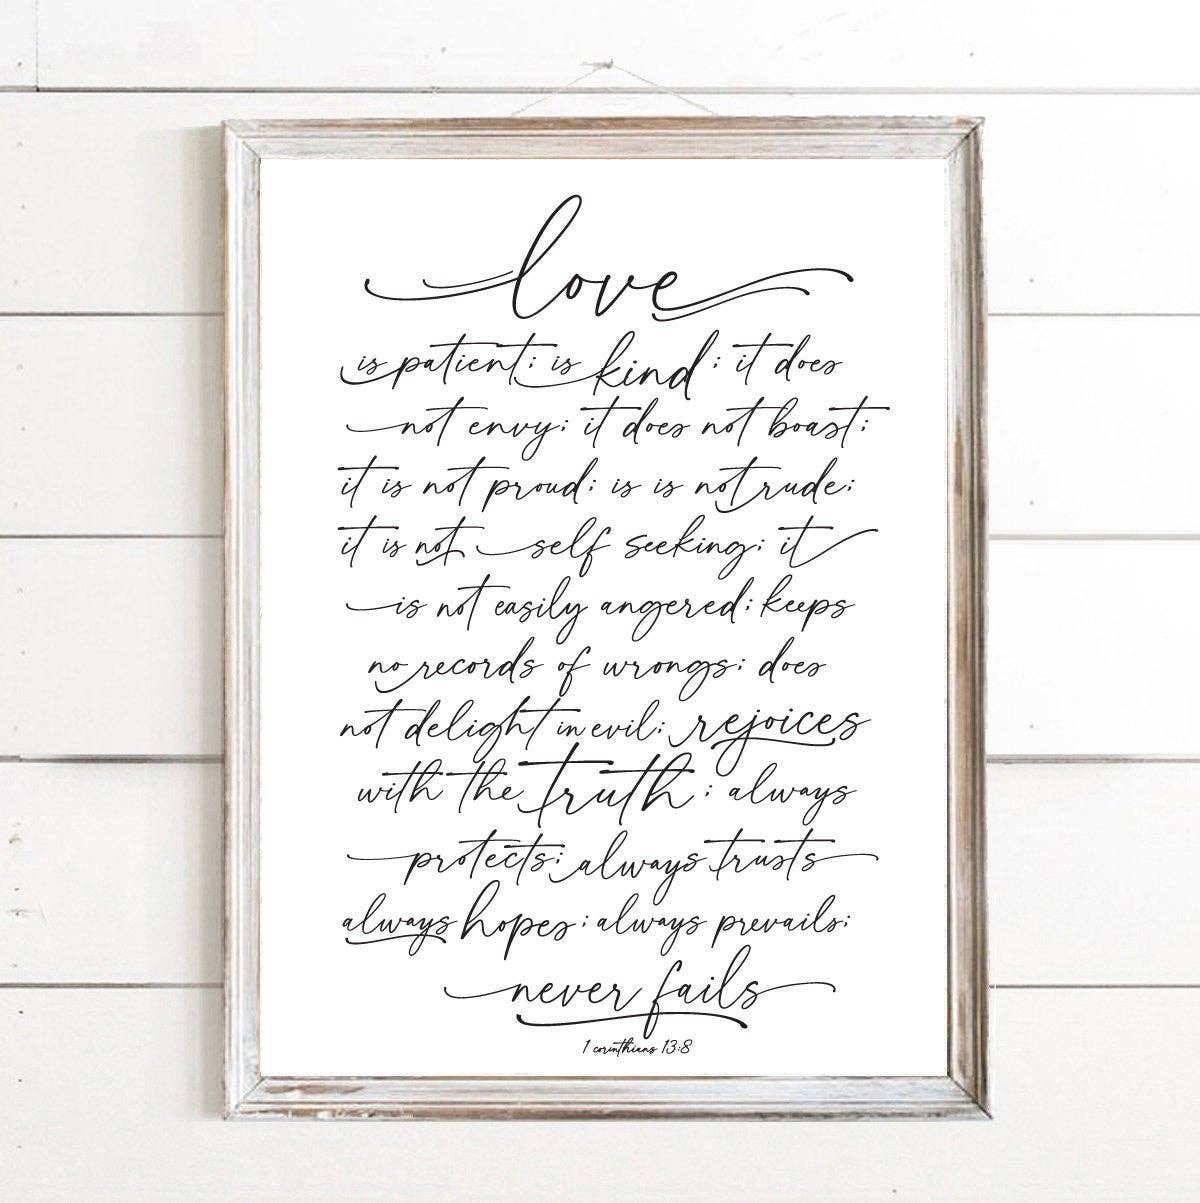 love
is patient; is kind; it does
not envy; it does not boast;
it is not proud; is is not rude;
it is not self seeking; it
is not easily angered; keeps
no records of wrongs; does
not delight in evil; rejoices
with the truth; always
protects; always trusts
always hopes; always prevails;
never fails
1 corinthians 13:8